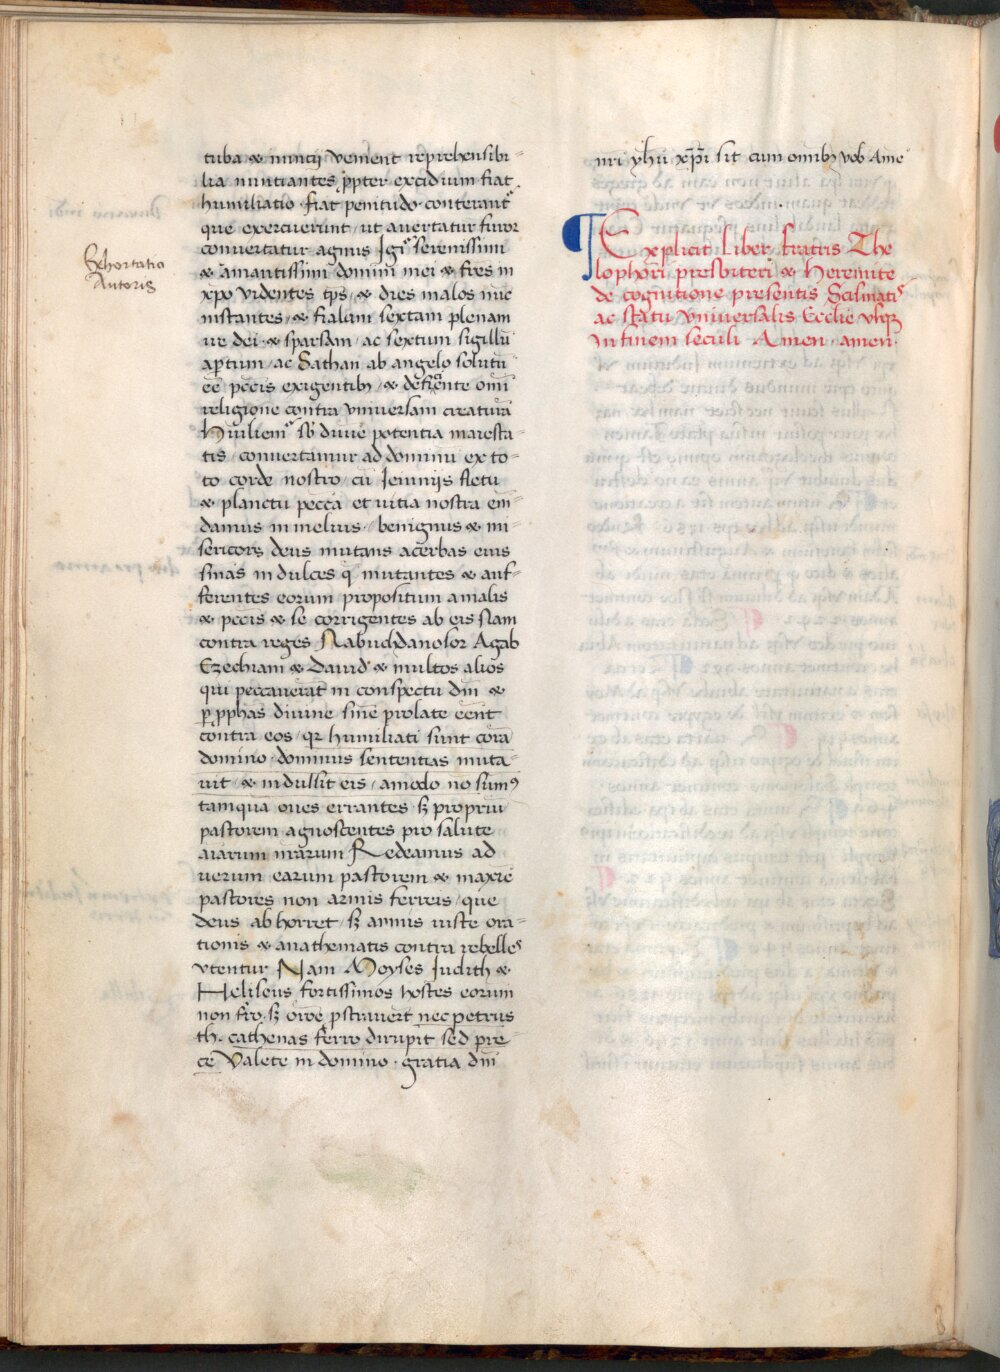 Exhortatio
Autoris
tuba & nuntij venient reprehensibi-
lia nuntiantes ꝓpter excidium fiat
humiliatio · fiat penitudo · conterant᷑
que exercuerunt / ut avertatur furor
convertatur agnus Jgr̃ serenissimi
& amantissimi domini mei & fr̃es in
xp̃o Videntes tp̃s / & dies malos nũc
instantes / & fialam sextam plenam
ire dei · & sparsam / ac sextum sigillũ
aꝑtum / ac Sathan ab angelo solutũ
eẽ pctĩs exigentibꝫ / & deficiẽte om̃i
religione contra Vniversam creaturã
sb̃ divine potentia maiesta-
tis / convertamur ad dominũ ex to-
to corde nostro / cũ Jeiunijs fletu
& planctu peccã et vitia nostra em̃-
damus in melius · benignus & mi-
sericors deus mutans acerbas eius
sñias in dulces q̃ mutantes & auf-
ferentes eorum propositum a malis
& pctĩs & se corrigentes ab eis Nam
contra reges Nabuchdanosor Agab
Ezechiam & David & multos alios
qui peccaverãt in conspectu dñi &
ꝑ ꝓphas divine sñie prolate eẽnt
contra eos / qꝛ humiliati sunt corã
domino · dominus sententias muta-
vit / & indulsit eis / amodo nõ simꝰ
tamquã oves errantes sꝫ propriũ
pastorem agnoscentes pro salute
aĩarum nr̃arum Redeamus ad
verum earum pastorem & maxĩe
pastores non armis ferreis / que
deus abhorret / sꝫ armis iuste ora-
tionis & anathematis contra rebelles
vtentur Nam Moyses Judith &
Heliseus fortissimos hostes eorum
non fr̃o · sꝫ or̃õe ꝓstravẽrt nec petrus
th. cathenas ferro dirupit sed pre-
ce Valete in domino · gratia dñi
nr̃i yhũ xp̃i sit cum omnibꝫ vob Amẽ
¶ Explicit Liber fratris The
lophori presbiteri & heremite
de cognitione presentis Scismatꝭ
ac statu Vniversalis Ecclĩe vsqꝫ
in finem seculi Amen · amen ·